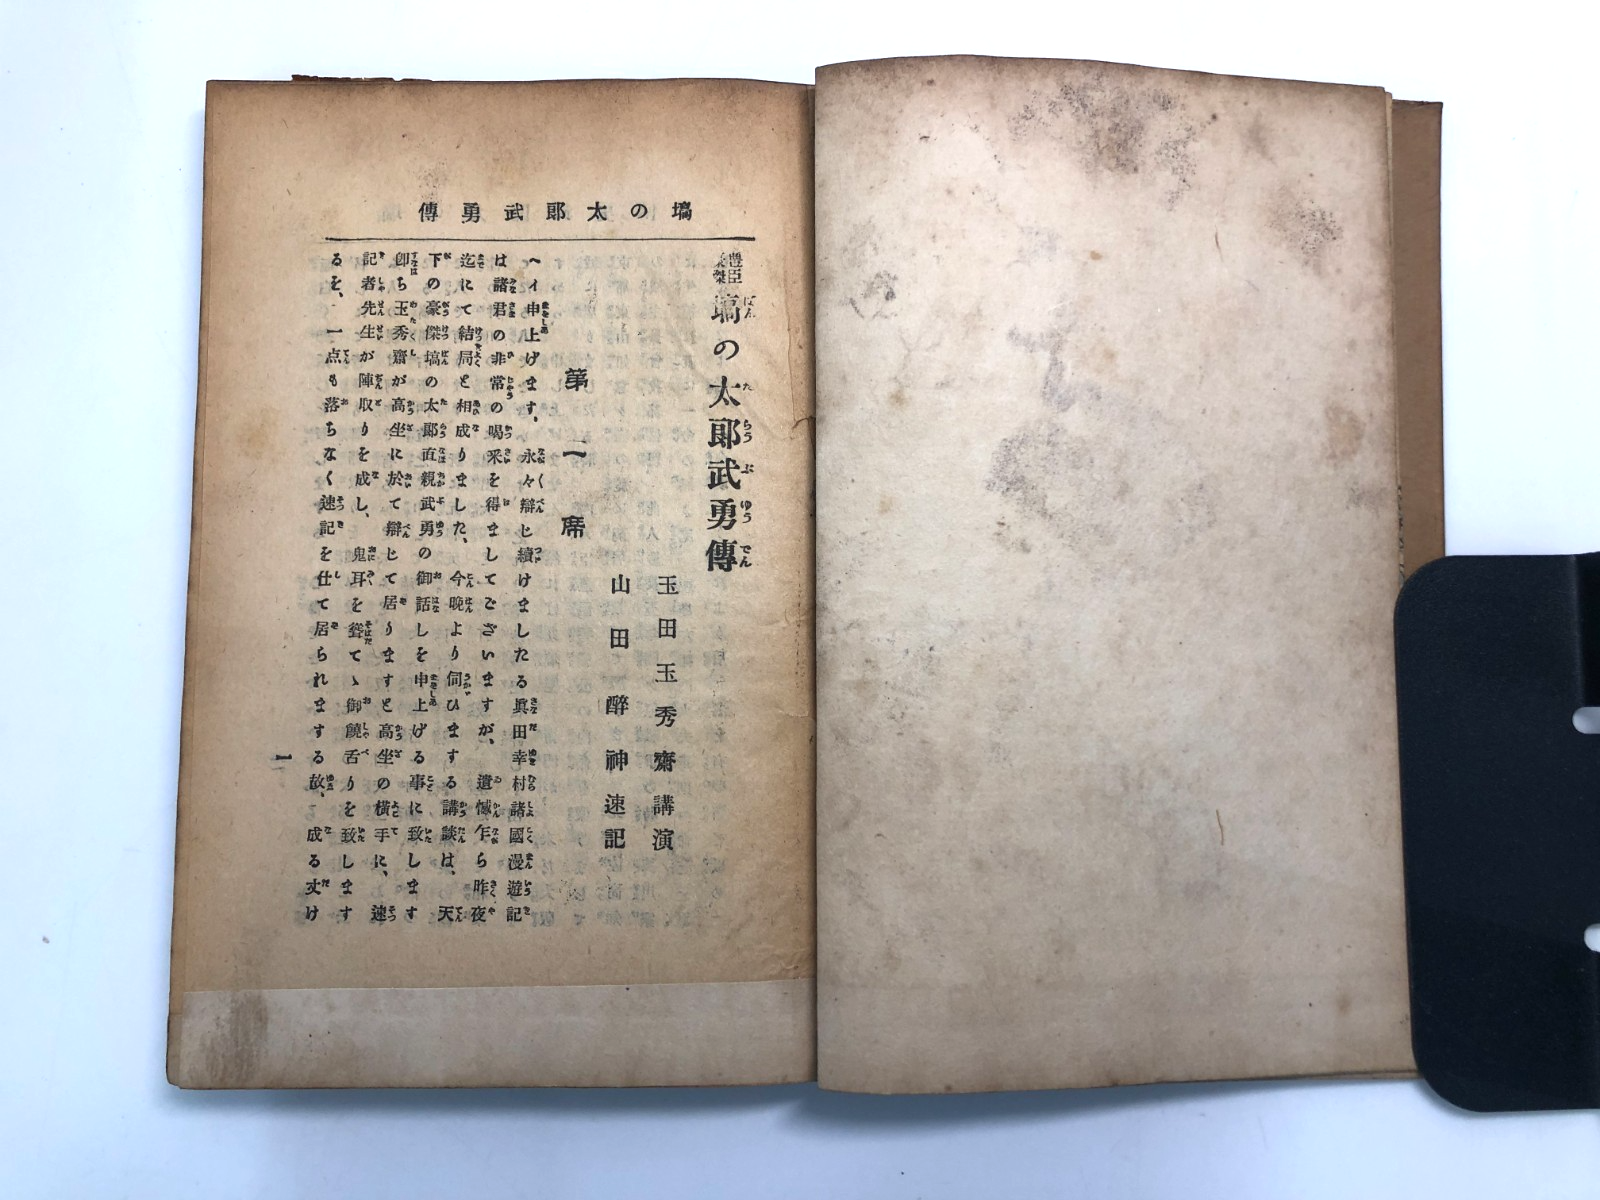 塙の太郎武勇傳
豊臣豪傑
塙の太郎武勇傳
玉田玉秀齋講演
山田醉神速記
第一席
ヘイ申上げます。永々辯じ續けましたる眞田幸村諸國漫遊記
は諸君の非常の喝采を得ましてございますが、遺憾乍ら昨夜
迄にて結局と相成りました、今晩より伺ひまする講談は、天
下の豪傑塙の太郎直親武勇の御話しを申上げる事に致します
卽ち玉秀齋が高坐に於て辯じて居りますと高坐の横手に、速
記者先生が陣取りを成し、鬼耳を聳てゝ御饒舌りを致します
るを、一点も落ちなく速記を仕て居られまする故、成る丈け
一